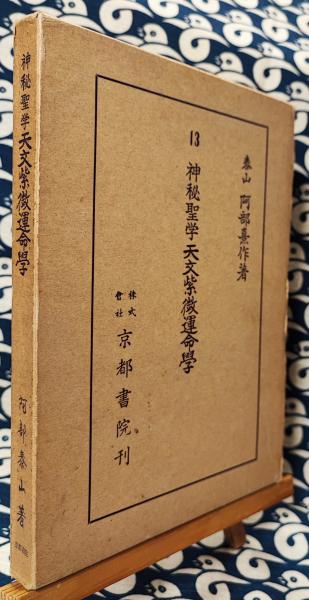 神秘聖学天文紫微運命學
阿部泰山著
泰山 阿部熹作著
13 神秘聖学天文紫微運命學
株式
會社
京都書院刊